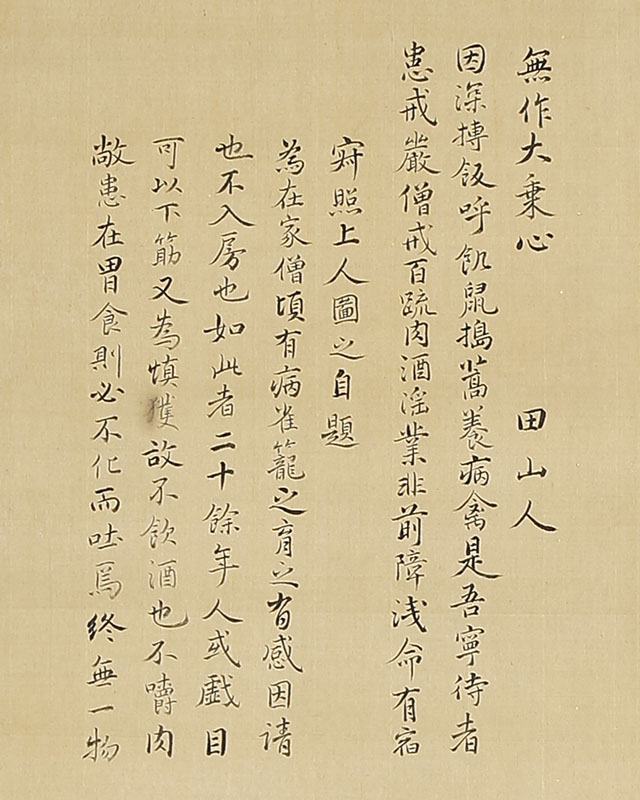 敞患在胃食則必不化而吐焉終無一物
可以下筋又為慎獲故不飲酒也不嚼肉
也不入房也如此者二十餘年人或戯目
為在家僧頃有病雀籠之育之有感因請
寂照上人圖之自題
恚戒嚴僧戒百疏肉酒淫業非前障浅命有宿
因深摶飯呼飢鼠搗蒿養病禽是吾寧待者
無作大乗心 田山人